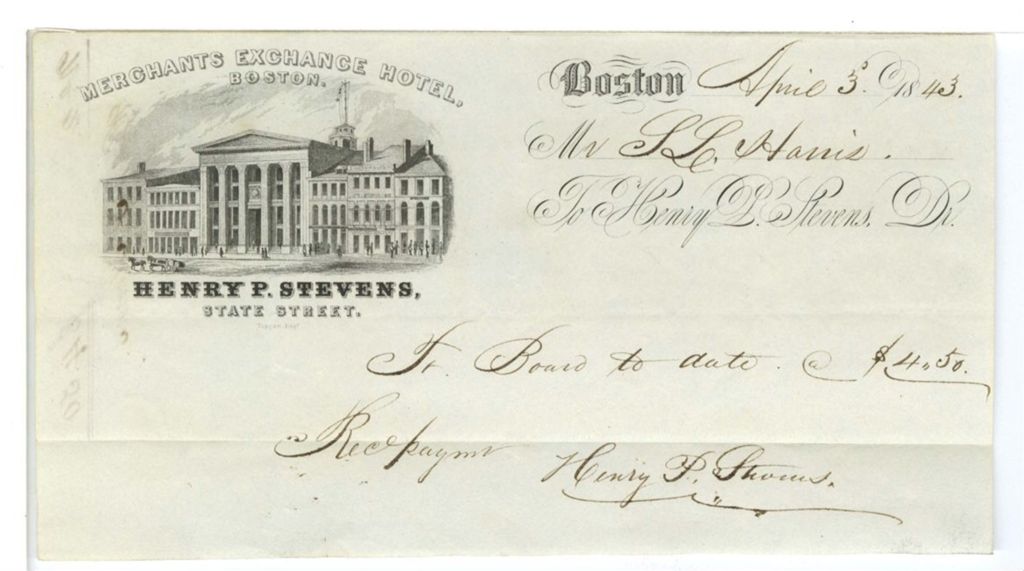 MERCHANTS EXCHANGE HOTEL,
BOSTON.
HENRY P. STEVENS,
STATE STREET.
Boston April 3d 1843.
Mr S L. Harris.
To Henry P. Stevens, Dr.
Fr. Board to date @ $4.50.
Rec payment
Henry P. Stevens.